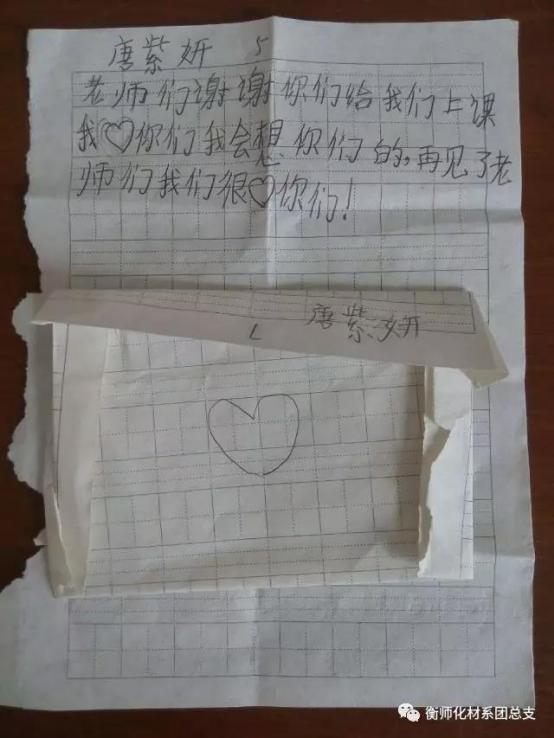 唐紫妍 5
老师们谢谢你们给我们上课
我♡你们我会想你们的,再见了老
师们我们很♡你们!
唐紫妍
衡师化材系团总支